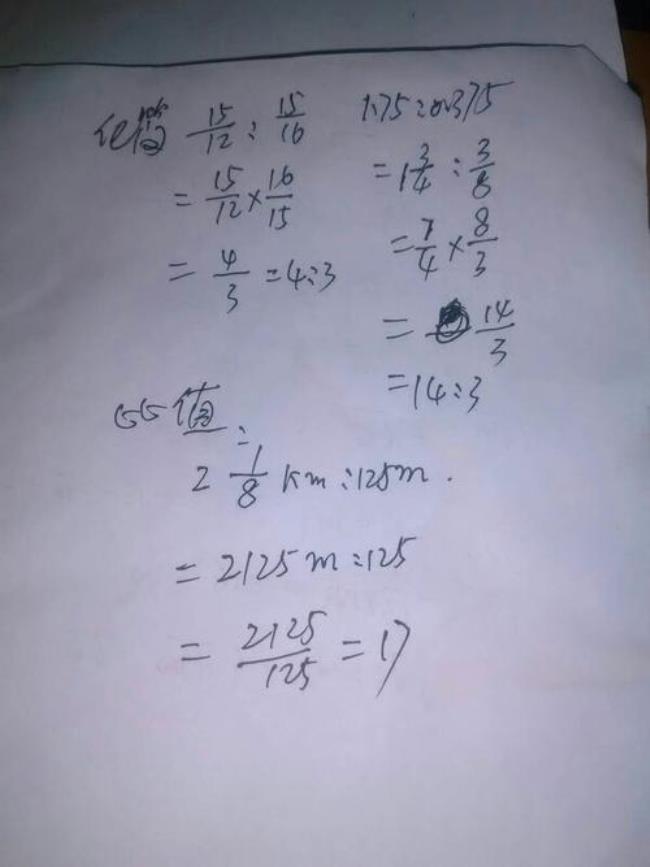 化简 15/12 : 15/16
= 15/12 × 16/15
= 4/3 = 4:3
1.75:0.375
= 1 3/4 : 3/8
= 7/4 × 8/3
= 14/3
= 14:3
比值:
2 1/8 km:125m.
= 2125m:125
= 2125/125 = 17